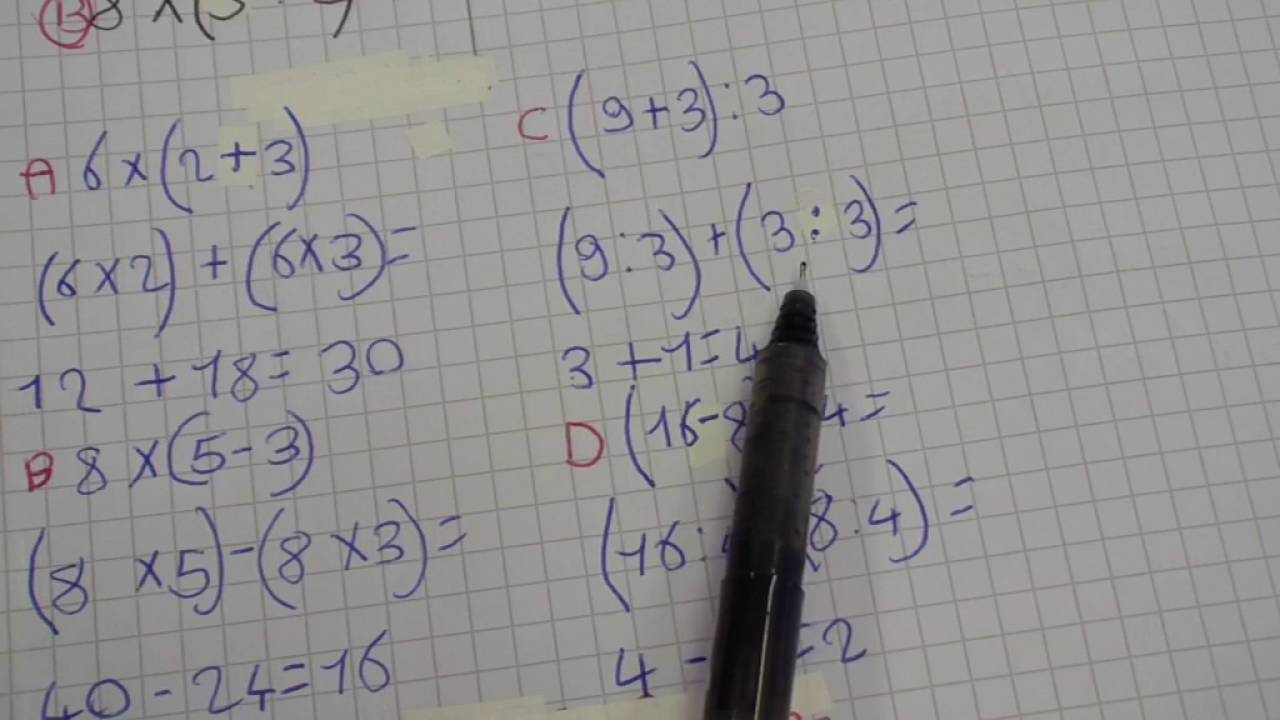 B 8 × (5
A 6 × (2 + 3)
(6 × 2) + (6 × 3) =
12 + 18 = 30
B 8 × (5 - 3)
(8 × 5) - (8 × 3) =
40 - 24 = 16
C (9 + 3) : 3
(9 : 3) + (3 : 3) =
3 + 1 = 4
D (16 - 8 4 =
(16 : 8 : 4) =
4 - = 2